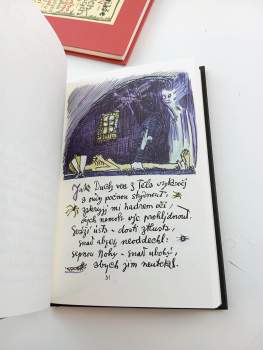 Jak Duch ven z Těla vyklouzej
a rudy počnou stydnout,
zakryjí mi hadrem oči,
bych nemohl víc prohlídnout.
Sváží ústa – dosti ztlusta,
snad abych neoddechl:
sepnou Nohy – snad ubohý,
abych jim neutekl.
31